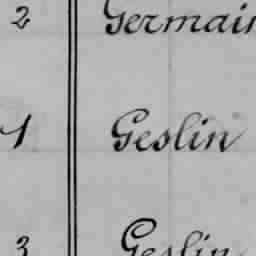 2 Germain
1 Geslin
3 Geslin